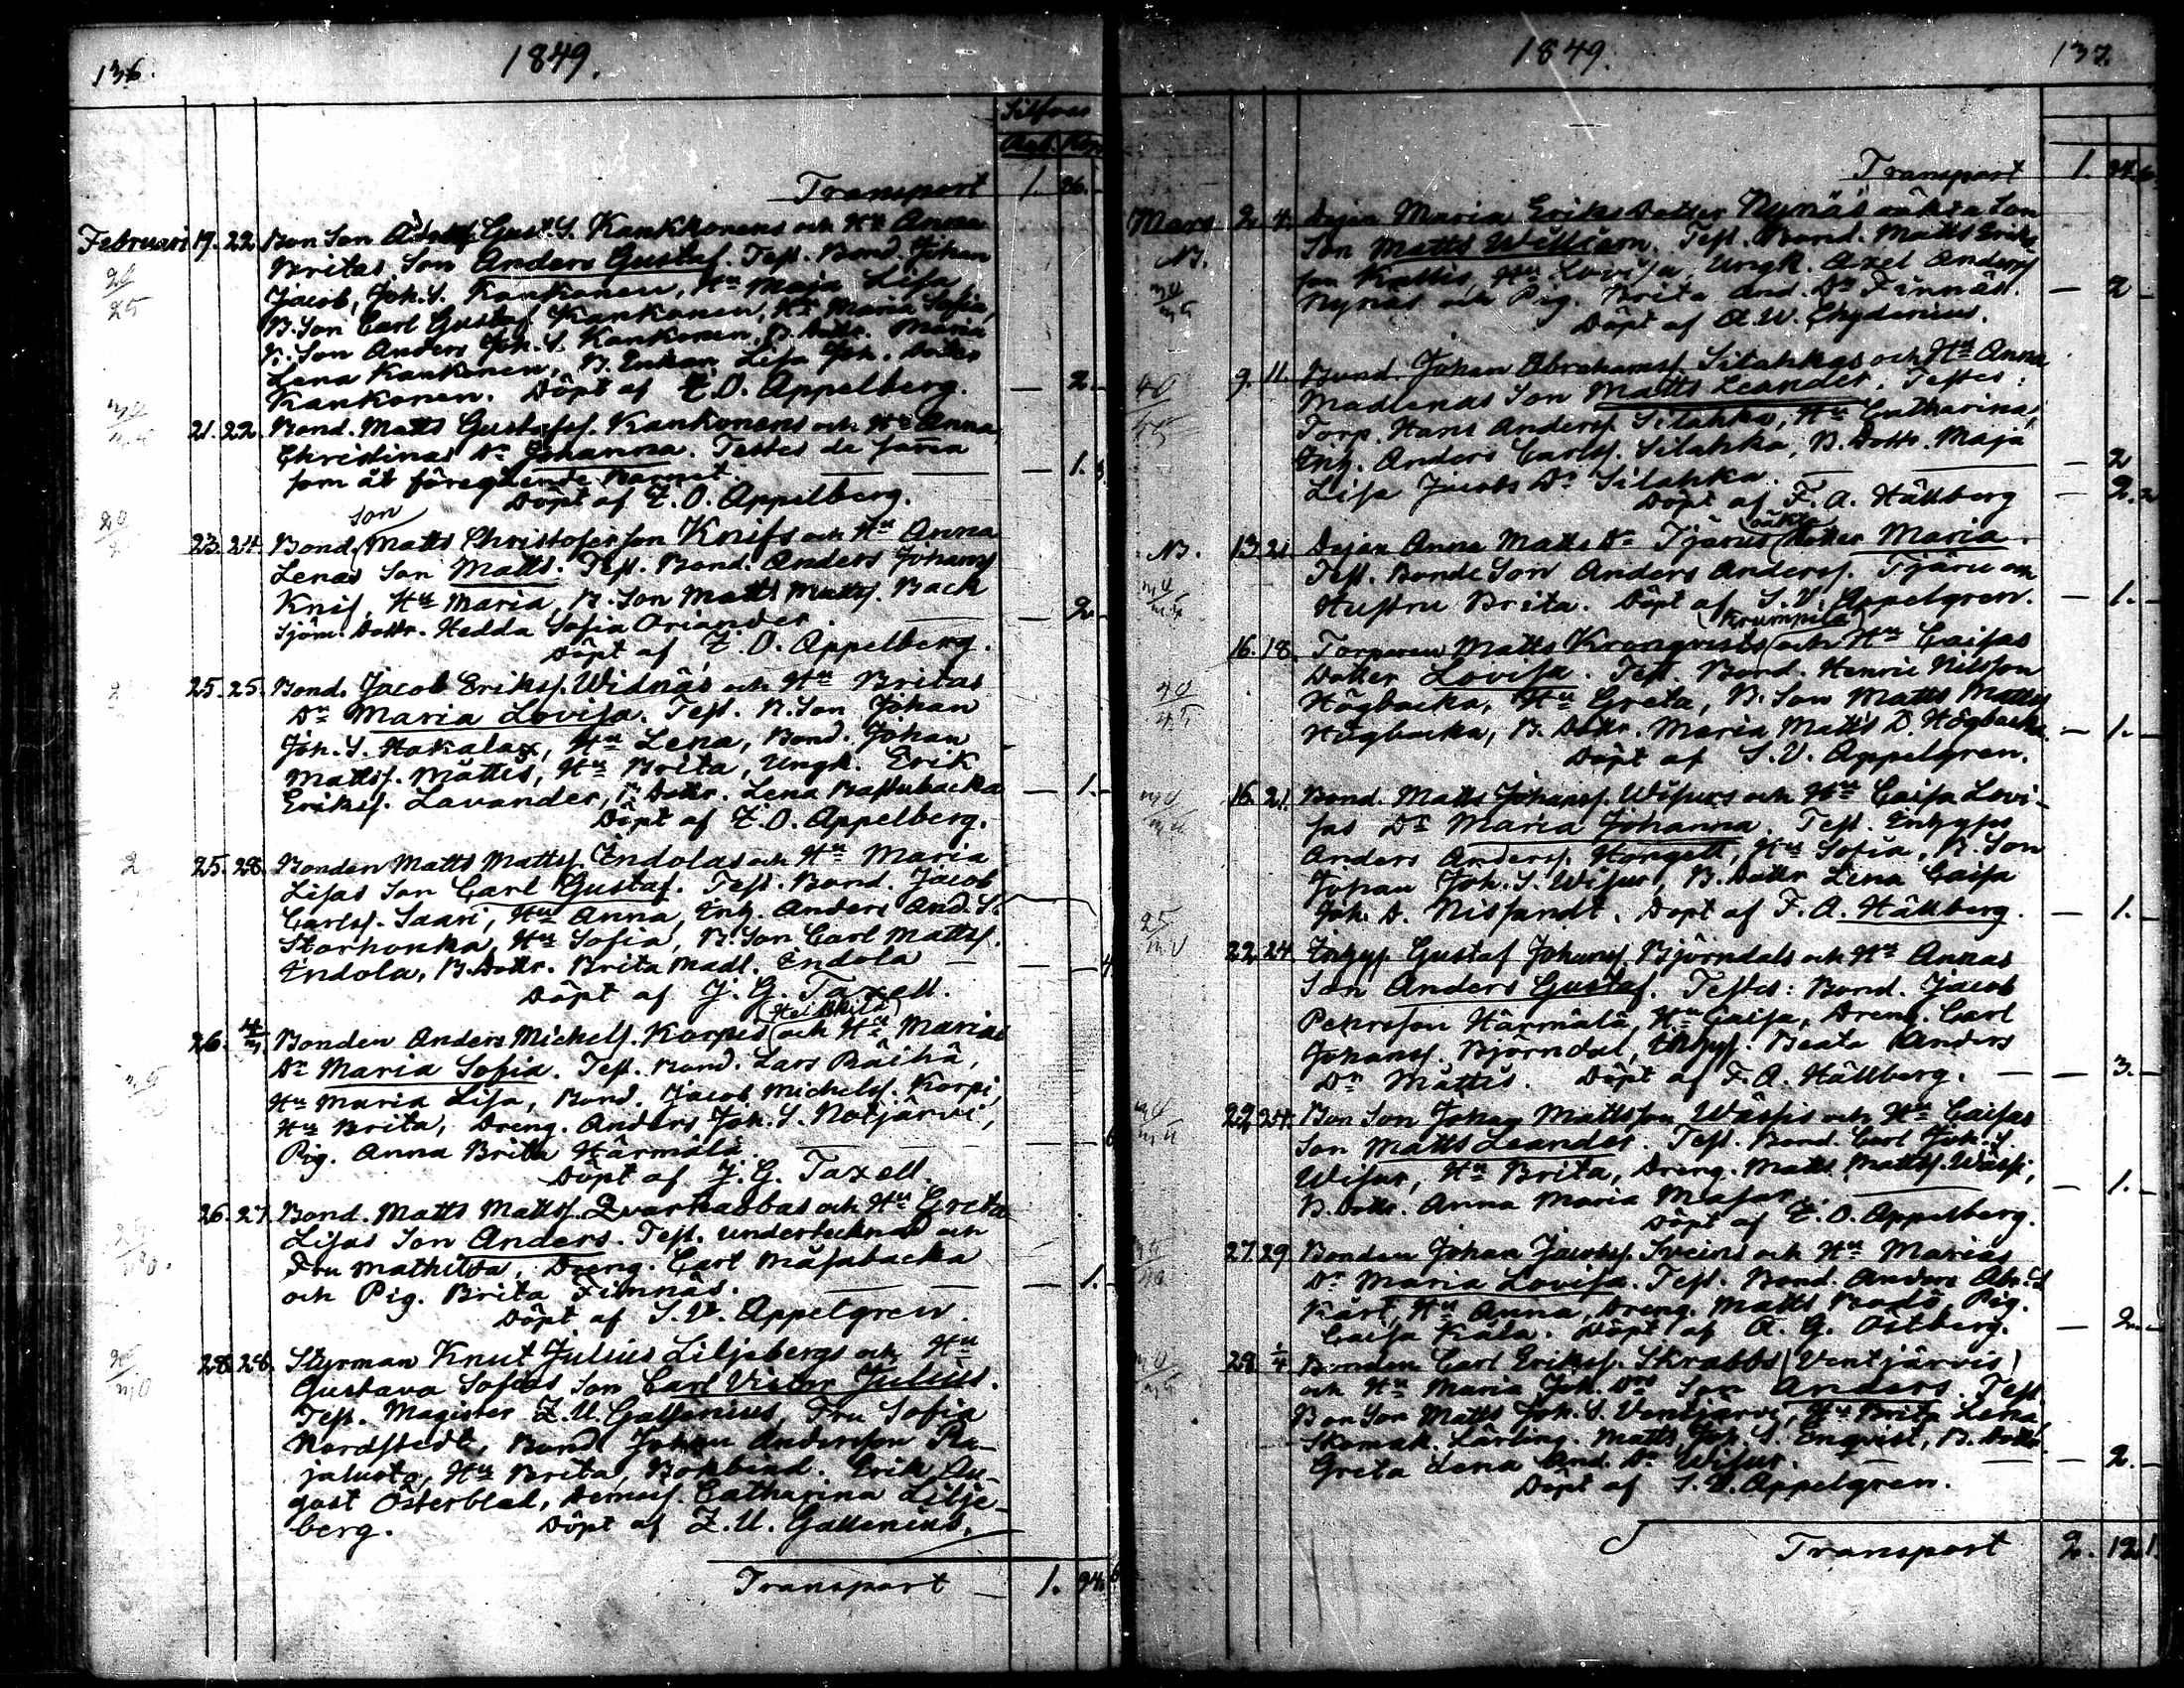 136.
1849.
Silfver
Rub. Kop
Transport 1. 26. -
Februari 19. 22. Bon Son Adolf Gust. S. Kankkonens och Hu Anna
Britas Son Anders Gustaf. Test. Bond. Johan
Jacob, Joh. S. Kankonen, Hu Maja Lisa,
B. Son Carl Gustaf Kankonen, Hu Maria Sofia,
B. Son Anders Joh. S. Kankonen, B. Dottr. Maria
Lena Kankonen, B. Enkan Lisa Joh. Dotter
Kankonen. Döpt af Z. O. Appelberg. - 2. -
21. 22. Bond. Matts Gustafss. Kankonens och Hu Anna
Christinas Dr Johanna. Testes de sama
som åt föregående Barnet. - 1. 3
Döpt af Z. O. Appelberg.
son
23. 24. Bond. Matts Christoferson Knifs och Hu Anna
Lenas Son Matts. Test. Bond. Anders Johanss
Knif, Hu Maria, B. Son Matts Mattss. Back
Sjöm. Dottr. Hedda Sofia Oriander. - 2. -
Döpt af Z. O. Appelberg.
25. 25. Bond. Jacob Erikss. Widnäs och Hu Britas
Dr Maria Lovisa. Test. B. Son Johan
Joh. S. Hakalax, Hu Lena, Bond. Johan
Mattss. Mattis, Hu Brita, Ungk. Erik
Erikss. Lavander, B. Dottr. Lena Bastubacka - 1. -
Döpt af Z. O. Appelberg.
25. 28. Bonden Matts Mattss. Indolas och Hu Maria
Lisas Son Carl Gustaf. Test. Bond. Jacob
Carlss. Saari, Hu Anna, Inh. Anders And. S.
Storhonka, Hu Sofia, B. Son Carl Mattss.
Indola, B. Dottr. Brita Madl. Indola - - 4
Döpt af J. G. Taxell.
(Heikkilä)
26. 4/3 Bonden Anders Michelss. Korpis och Hu Marias
Dr Maria Sofia. Test. Bond. Lars Räihä,
Hu Maria Lisa, Bond. Jacob Michelss. Korpi,
Hu Brita, Dreng. Anders Joh. S. Notjärvi,
Pig. Anna Brita Härmälä. - - 6
Döpt af J. G. Taxell.
26. 27. Bond. Matts Mattss. Qvarnabbas och Hu Greta
Lisas Son Anders. Test. undertecknad och
Fru Mathilda, Dreng. Carl Måsabacka
och Pig. Brita Finnäs. - 1. -
Döpt af S. V. Appelgren.
28. 28. Styrman Knut Julius Liljebergs och Hu
Gustava Sofias Son Carl Victor Julius.
Test. Magister Z. U. Gallenius, Fru Sofia
Nordstedt, Bond. Johan Andersson Ra-
jalusto, Hu Brita, Bokbind. Erik Au-
gust Österblad, Demois. Catharina Lilje-
berg. Döpt af Z. U. Gallenius.
Transport 1. 94. 6
1849.
137.
Transport 1. 94. 6
Mars 2. 4. Dejan Maria Eriks Dotter Nynäs oäkta Son
NB. Son Matts William. Test. Bond. Matts Eriks
son Knattis, Hu Lovisa, Ungk. Axel Anderss
Nynäs och Pig. Brita And. Dr Finnäs. - 2 -
Döpt af A. W. Chydenius.
9. 11. Bond. Johan Abrahamss. Silahkas och Hu Anna
Madlenas Son Matts Leander. Testes:
Torp. Hans Anderss. Silahka, Hu Catharina,
Inh. Anders Carlss. Silahka, B. Dottr. Maja
Lisa Jacobs Dr Silahka. - 2
Döpt af F. A. Hällberg - 2. 2
oäkta
NB. 13 21 Dejan Anna Matts Dr Tjärus Dotter Maria.
Test. Bonde Son Anders Anderss. Tjäru och
Hustru Brita. Döpt af S. V. Appelgren. - 1. -
(Krumpila)
16. 18. Torparen Matts Kronqvists och Hu Caisas
Dotter Lovisa. Test. Bond. Henric Nilsson
Högbacka, Hu Greta, B. Son Matts Mattss
Högbacka, B. Dottr. Maria Matts D. Högbacka. - 1. -
Döpt af S. V. Appelgren.
16. 21. Bond. Matts Johanss. Wisurs och Hu Caisa Lovi-
sas Dr Maria Johanna. Test. Inhyss
Anders Anderss. Hongell, Hu Sofia, B. Son
Johan Joh. S. Wisur, B. Dottr Lena Caisa
Joh. D. Nissandt. Döpt af F. A. Hällberg. - 1. -
22. 24. Inhys. Gustaf Johanss. Björndals och Hu Annas
Son Anders Gustaf. Testes: Bond. Jacob
Pehrsson Härmälä, Hu Caisa, Dreng. Carl
Johanss. Björndal, Inhys. Beata Anders
Dr Mattis. Döpt af F. A. Hällberg. - 3. -
22. 24. Bon Son Johan Mattsson Wässis och Hu Caisas
Son Matts Leander. Test. Bond. Carl Joh. S.
Wisur, Hu Brita, Dreng. Matts Mattss. Wässi,
B. Dottr. Anna Maria Masar. - 1. -
Döpt af Z. O. Appelberg.
27. 29 Bonden Johan Jacobss. Sveins och Hu Marias
Dr Maria Lovisa. Test. Bond. Anders Abr. S
Kårt, Hu Anna, Dreng. Matts Bodö, Pig.
Caisa Kala. Döpt af A. G. Östberg. - 2. -
29. 1/4 Bonden Carl Erikss. Skrabbs (Ventjärvis)
och Hu Maria Joh. Drs Son Anders. Test
Bon Son Matts Joh. S. Ventjärvi, Hu Brita Lena,
Skomak. Lärling. Matts Joh. S. Enqvist, B. Dottr
Greta Lena And. Dr Wisur. - 2. -
Döpt af S. V. Appelgren.
Transport 2. 12. 1.